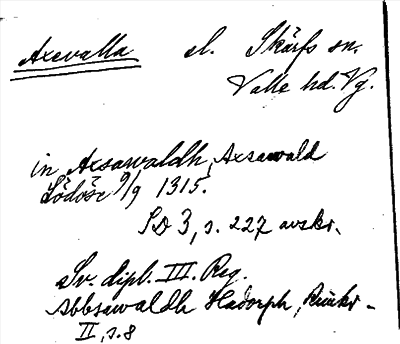 Axevalla el. Skärfs sn.
Valle hd. Vg.
in Axsawaldh, Axsawald
Lödöse 9/9 1315.
SD 3, s. 227 avskr.
Sv. dipl. III. Reg.
Abbsawaldh Hadorph, Rimkr.
II, s. 8